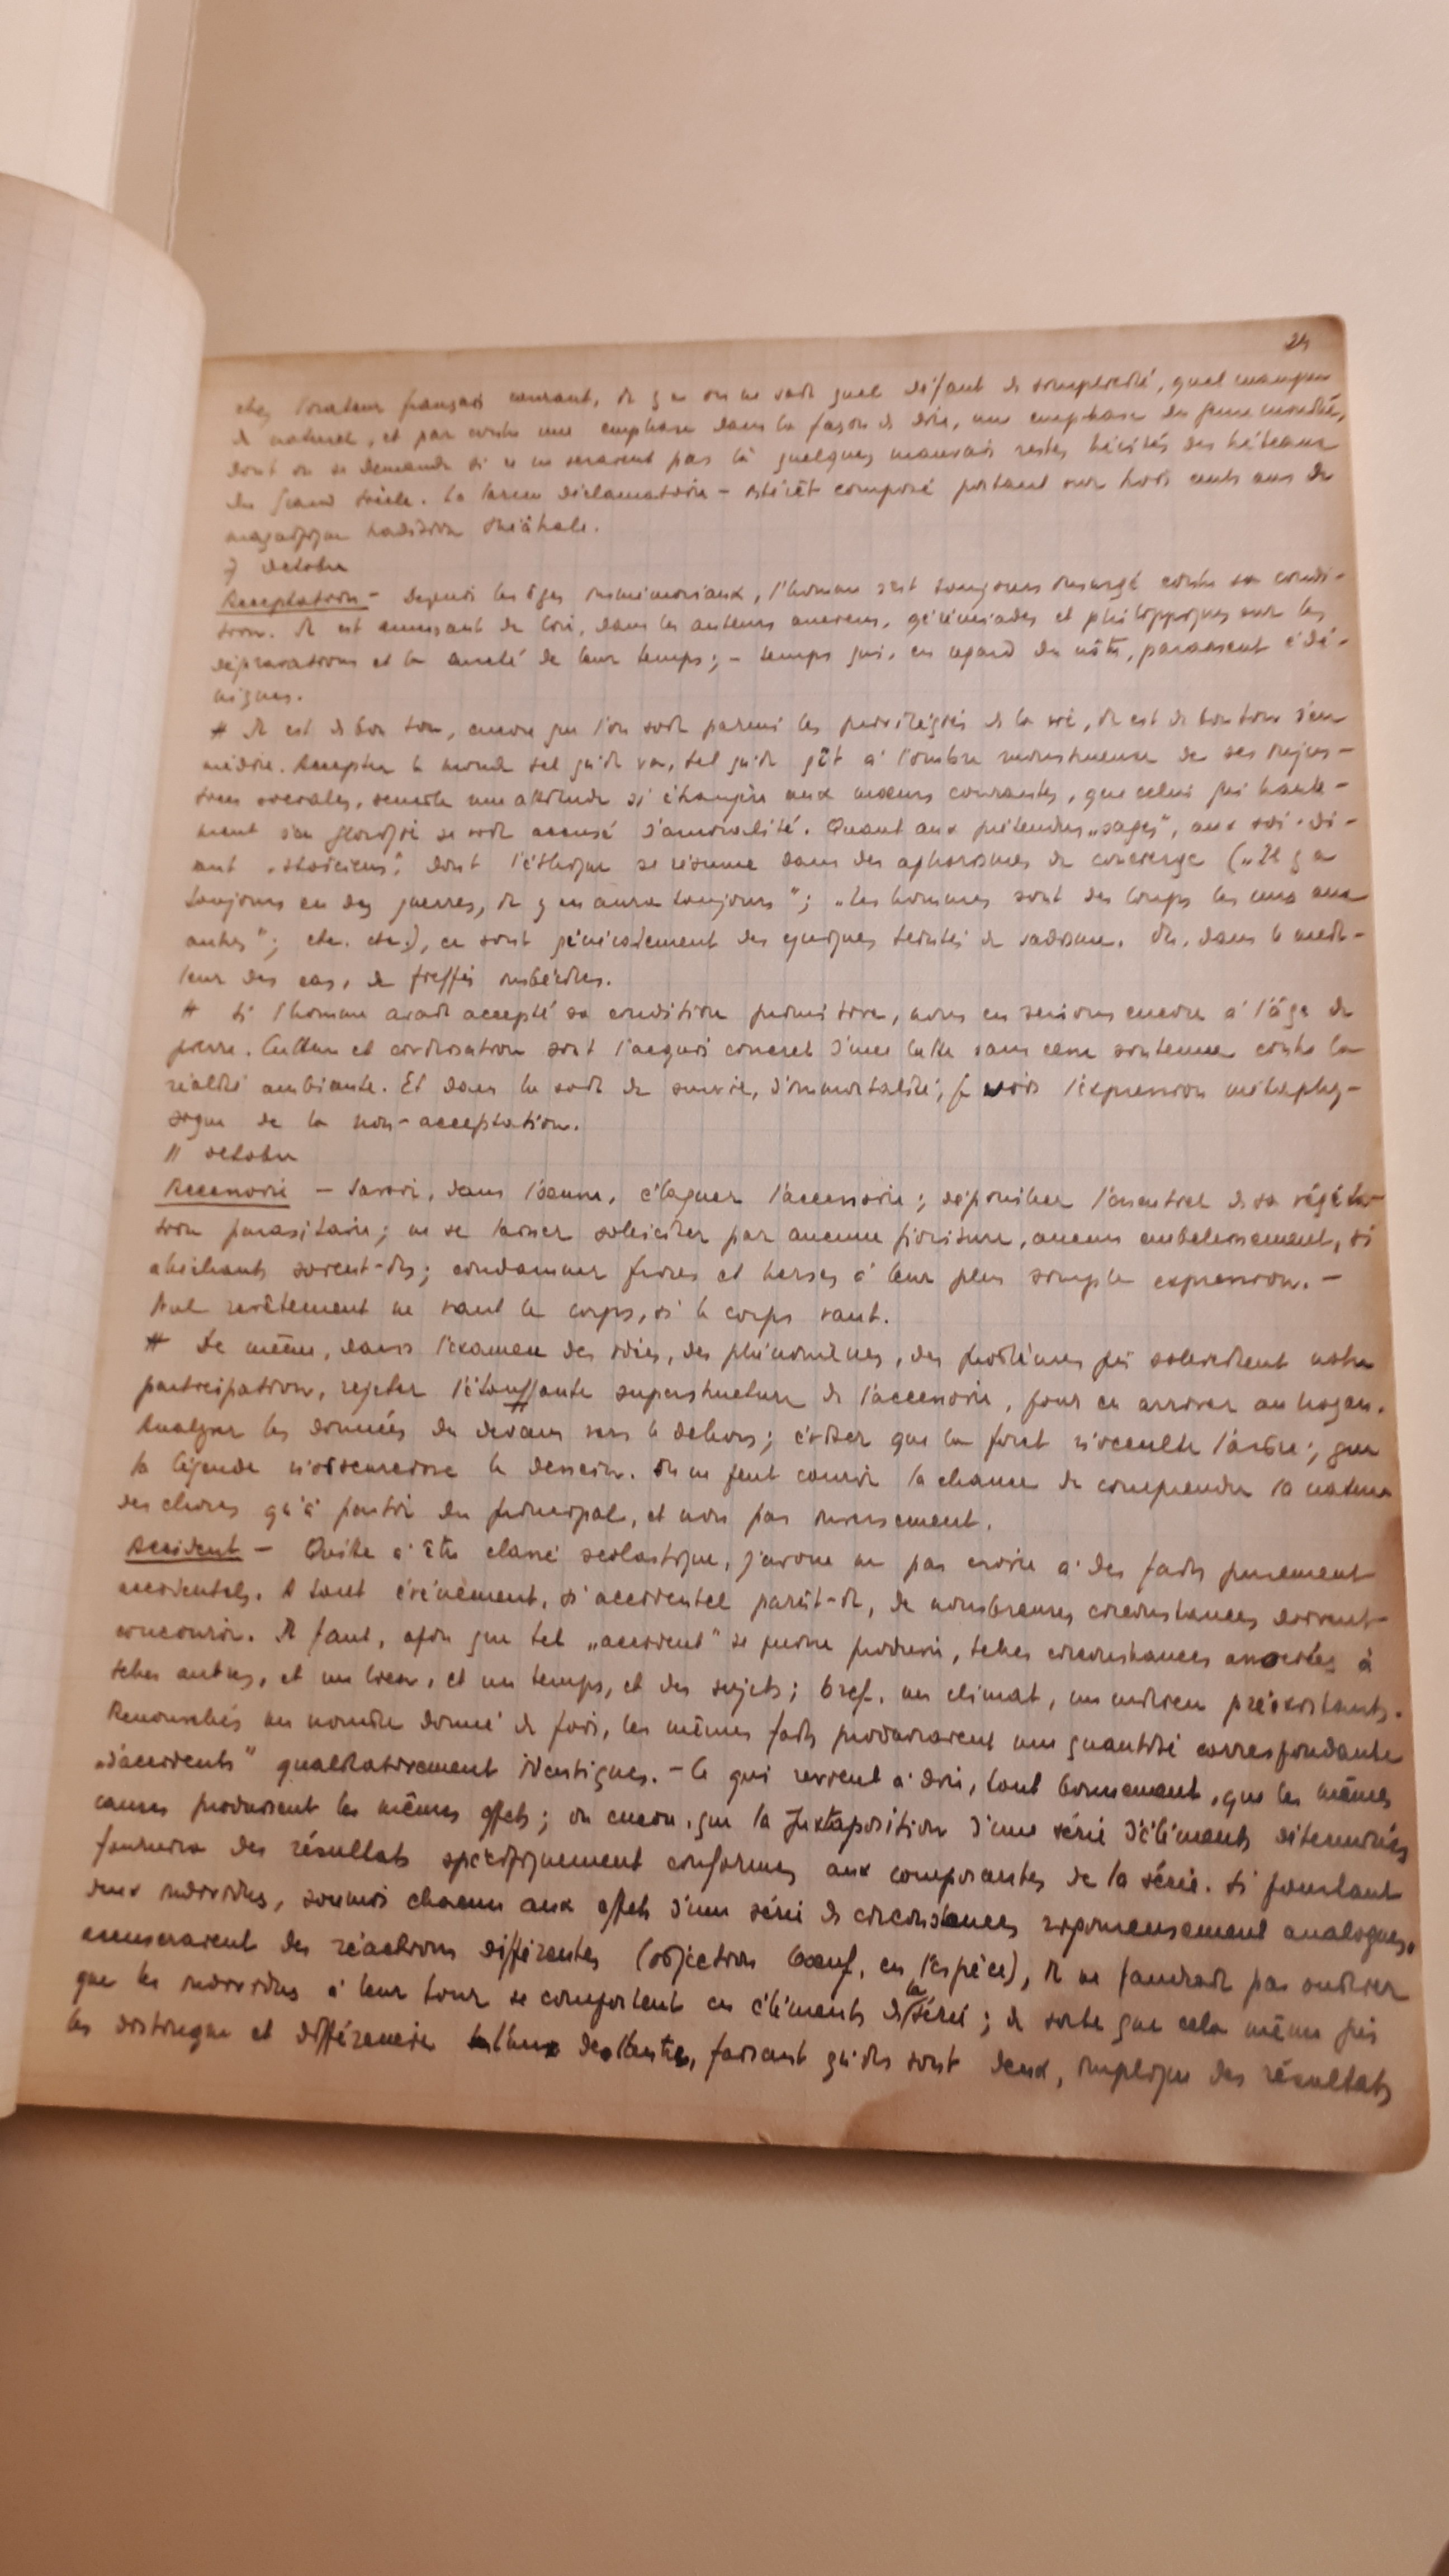 24
chez l'orateur français courant, il y a on ne sait quel défaut de simplicité, quel manque
de naturel, et par contre une emphase dans la façon de dire, une emphase du genre
dont on se demande si ce ne seraient pas là quelques mauvais restes hérités des tréteaux
du Grand siècle. La tarem déclamatoire – intérêt composé portant sur trois cents ans de
magnifique tradition théâtrale.
7 octobre
Acceptation – Depuis les âges immémoriaux, l'homme s'est toujours insurgé contre sa condi-
tion. Il est amusant de lire, dans les auteurs anciens, jérémiades et philippiques sur les
dépravations et la cruauté de leur temps; – temps qui, en regard du nôtre, paraissent édé-
niques.
# Il est de bon ton, encore que l'on soit parmi les privilégiés de la vie, il est de bon ton d'en
médire. Accepter le monde tel qu'il va, tel qu'il gît à l'ombre monstrueuse de ses injus-
tices sociales, semble une attitude si étrangère aux mœurs courantes, que celui qui haute-
ment s'en glorifie se voit accusé d'amoralité. Quant aux prétendus „sages", aux soi-di-
sant „stoïciens", dont l'éthique se résume dans des aphorismes de concierge („Il y a
toujours eu des guerres, il y en aura toujours"; „les hommes sont des loups les uns aux
autres"; etc. etc.), ce sont généralement des cyniques teintés de sadisme. Ou, dans le meil-
leur des cas, de fieffés imbéciles.
# Si l'homme avait accepté sa condition primitive, nous en serions encore à l'âge de
pierre. Culture et civilisation sont l'acquis concret d'une lutte sans cesse soutenue contre la
réalité ambiante. Et dans la soif de survie, d'immortalité, je vois l'expression métaphy-
sique de la non-acceptation.
11 octobre
Accessoire – Savoir, dans l'œuvre, élaguer l'accessoire; dépouiller l'essentiel de sa végéta-
tion parasitaire; ne se laisser solliciter par aucune fioriture, aucun embellissement, si
alléchants soient-ils; condamner proses et verses à leur plus simple expression. –
Nul revêtement ne vaut le corps, si le corps vaut.
# De même, dans l'examen des idées, des phénomènes, des problèmes qui sollicitent notre
participation, rejeter l'étouffante superstructure de l'accessoire, pour en arriver au noyau.
Analyser les données du dedans vers le dehors; éviter que la forêt n'occulte l'arbre; que
la légende n'obscurcisse le dessein. On ne peut courir la chance de comprendre la nature
des choses qu'à partir du principal, et non pas inversement.
Accident – Quitte à être classé scolastique, j'avoue ne pas croire à des faits purement
accidentels. À tout événement, si accidentel parût-il, de nombreuses circonstances doivent
concourir. Il faut, afin que tel „accident" se puisse produire, telles circonstances associées à
telles autres, et un lieu, et un temps, et des sujets; bref, un climat, un milieu préexistants.
Renouvelés un nombre donné de fois, les mêmes faits produiraient une quantité correspondante
„d'accidents" qualitativement identiques. – Ce qui revient à dire, tout bonnement, que les mêmes
causes produisent les mêmes effets; ou encore, que la juxtaposition d'une série d'éléments déterminés
fournira des résultats spécifiquement conformes aux composantes de la série. Si pourtant
deux individus, soumis chacun aux effets d'une série de circonstances rigoureusement analogues,
accuseraient des réactions différentes (objection bœuf, en l'espèce), il ne faudrait pas oublier
que les individus à leur tour se comportent en éléments de la série; de sorte que cela même qui
les distingue et différencie l'un de l'autre, faisant qu'ils sont deux, implique des résultats